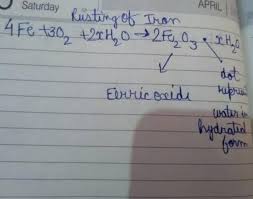 Saturday
APRIL
Rusting of Iron
4Fe +3O₂ +2xH₂O → 2Fe₂O₃ • xH₂O
Ferric oxide
dot
represent
water in
hydrated
form